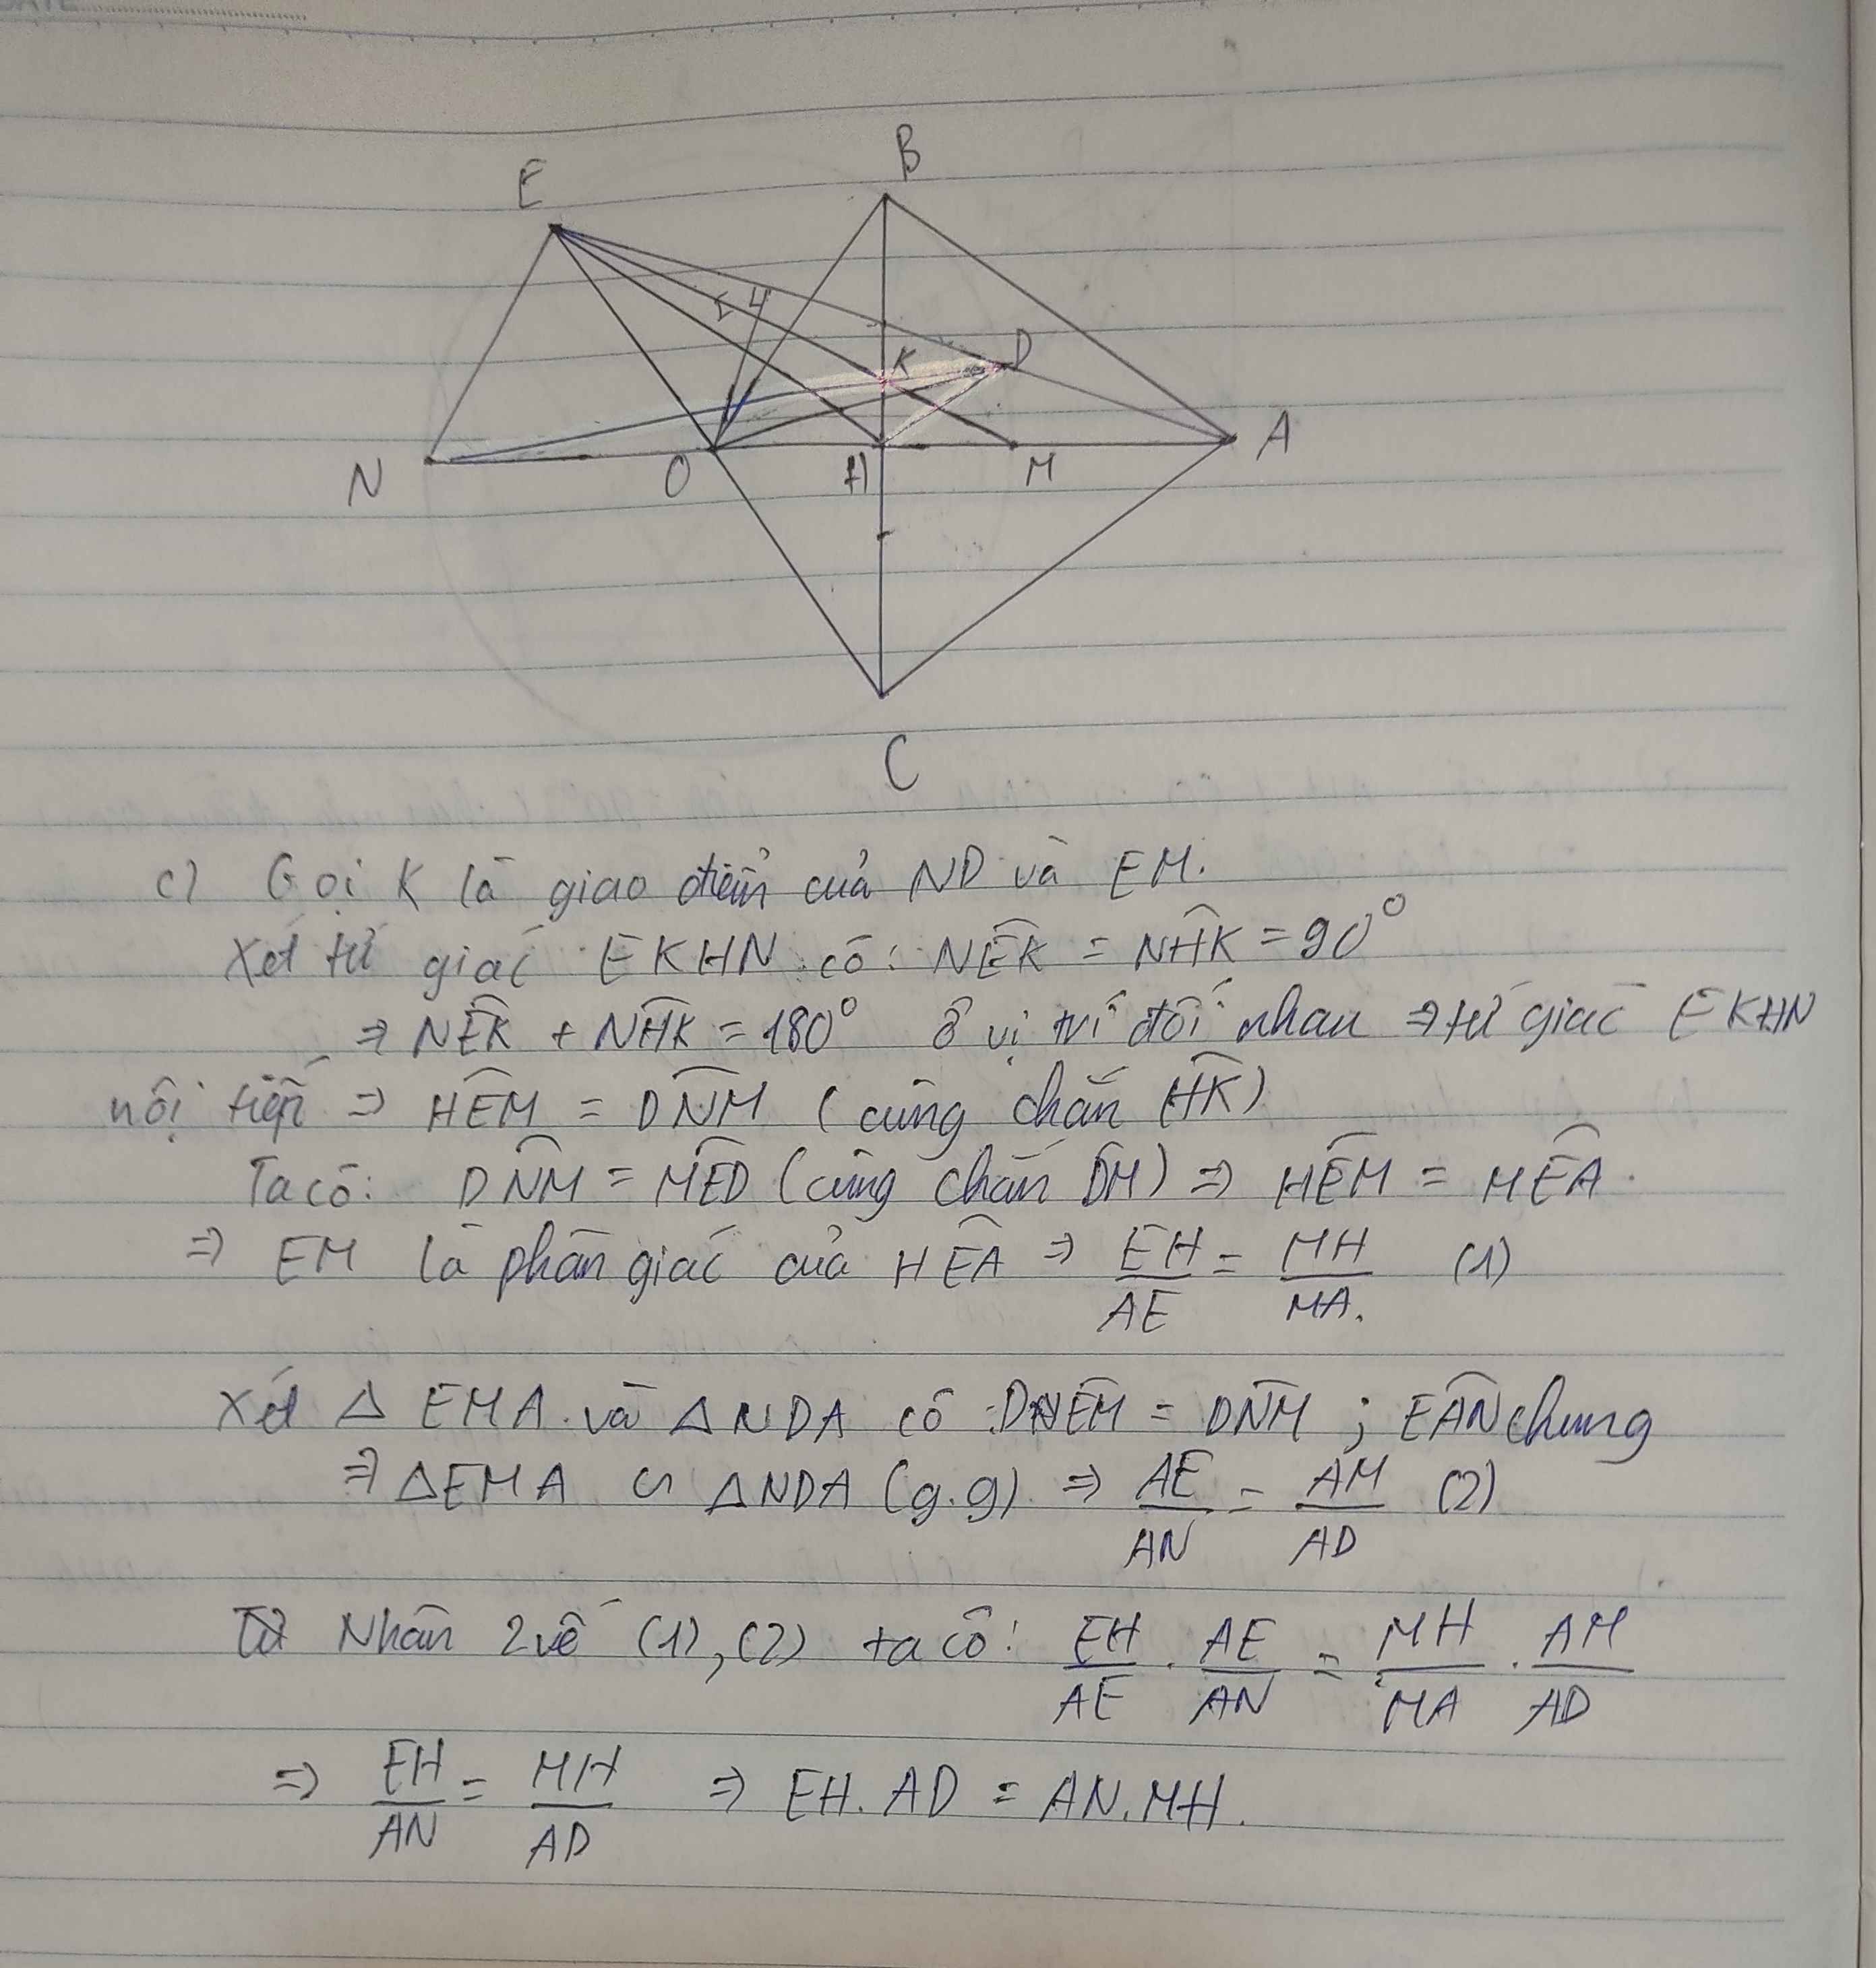 E
B
I
K
D
N
O
H
M
A
C
c) Gọi K là giao điểm của ND và EM.
Xét tứ giác EKHN có: \widehat{NEK} = \widehat{NHK} = 90°
⇒ \widehat{NEK} + \widehat{NHK} = 180° ở vị trí đối nhau ⇒ tứ giác EKHN
nội tiếp ⇒ \widehat{HEM} = \widehat{DNM} (cùng chắn \widehat{HK})
Ta có: \widehat{DNM} = \widehat{MED} (cùng chắn \widehat{DM}) ⇒ \widehat{HEM} = \widehat{MEA}.
⇒ EM là phân giác của \widehat{HEA} ⇒ EH/AE = MH/MA. (1)
Xét Δ EMA và Δ NDA có: \widehat{DEM} = \widehat{DNM} ; \widehat{EAN} chung
⇒ ΔEMA ∽ ΔNDA (g.g) ⇒ AE/AN = AM/AD (2)
Nhân 2 vế (1), (2) ta có: EH/AE . AE/AN = MH/MA . AM/AD
⇒ EH/AN = MH/AD ⇒ EH.AD = AN.MH.